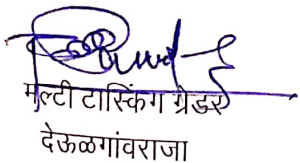 मल्टी टास्किंग ग्रेडर
देऊळगांवराजा